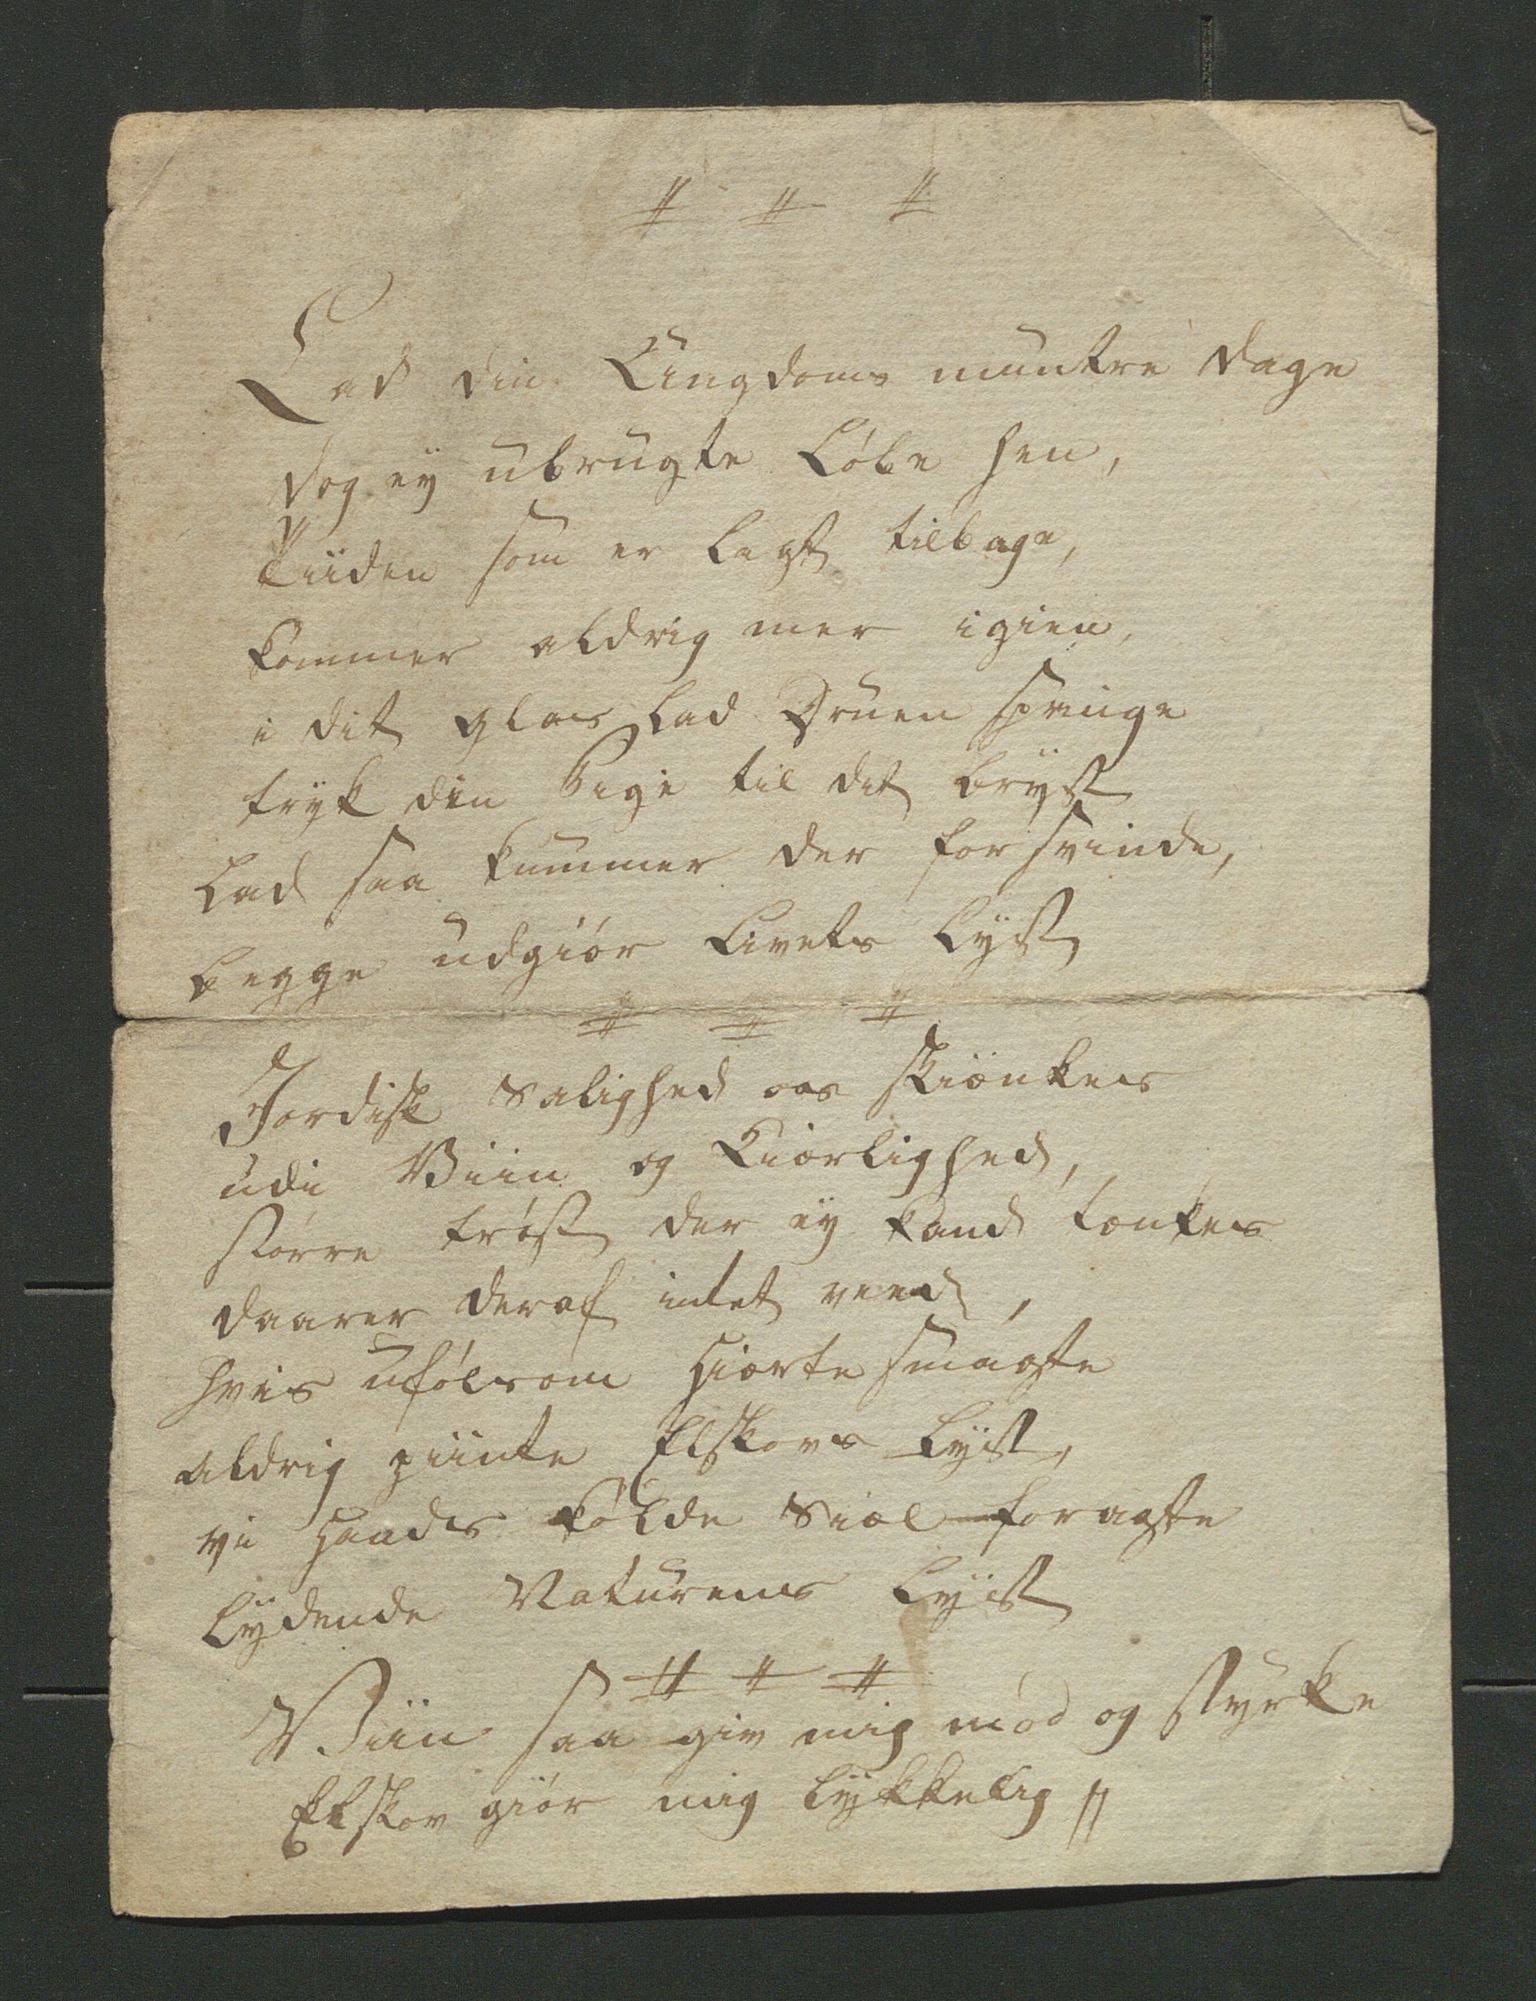 # # #
Lad din Ungdoms muntre dage
dog ey ubrugte Løbe hen,
Tiiden som er lagt tilbage,
kommer aldrig mer igien,
i dit glas Lad Druen springe
tryk din Pige til dit bryst
Lad saa kummer der for svinde,
begge udgiør Livets Lyst
# # #
Jordisk Salighed oos skiænkes
udi Viin og Kiærlighed,
større trøst der ey kand tænkes
daarer deraf intet veed,
hvis ufølsom Hiærte smagte
aldrig piinte Elskovs Lyst,
vi Haads kolde Siæl foragte
Lydende Naturens Lyst
# # #
Viin saa giv mig mod og styrke
Elskov giør mig lykkelig //